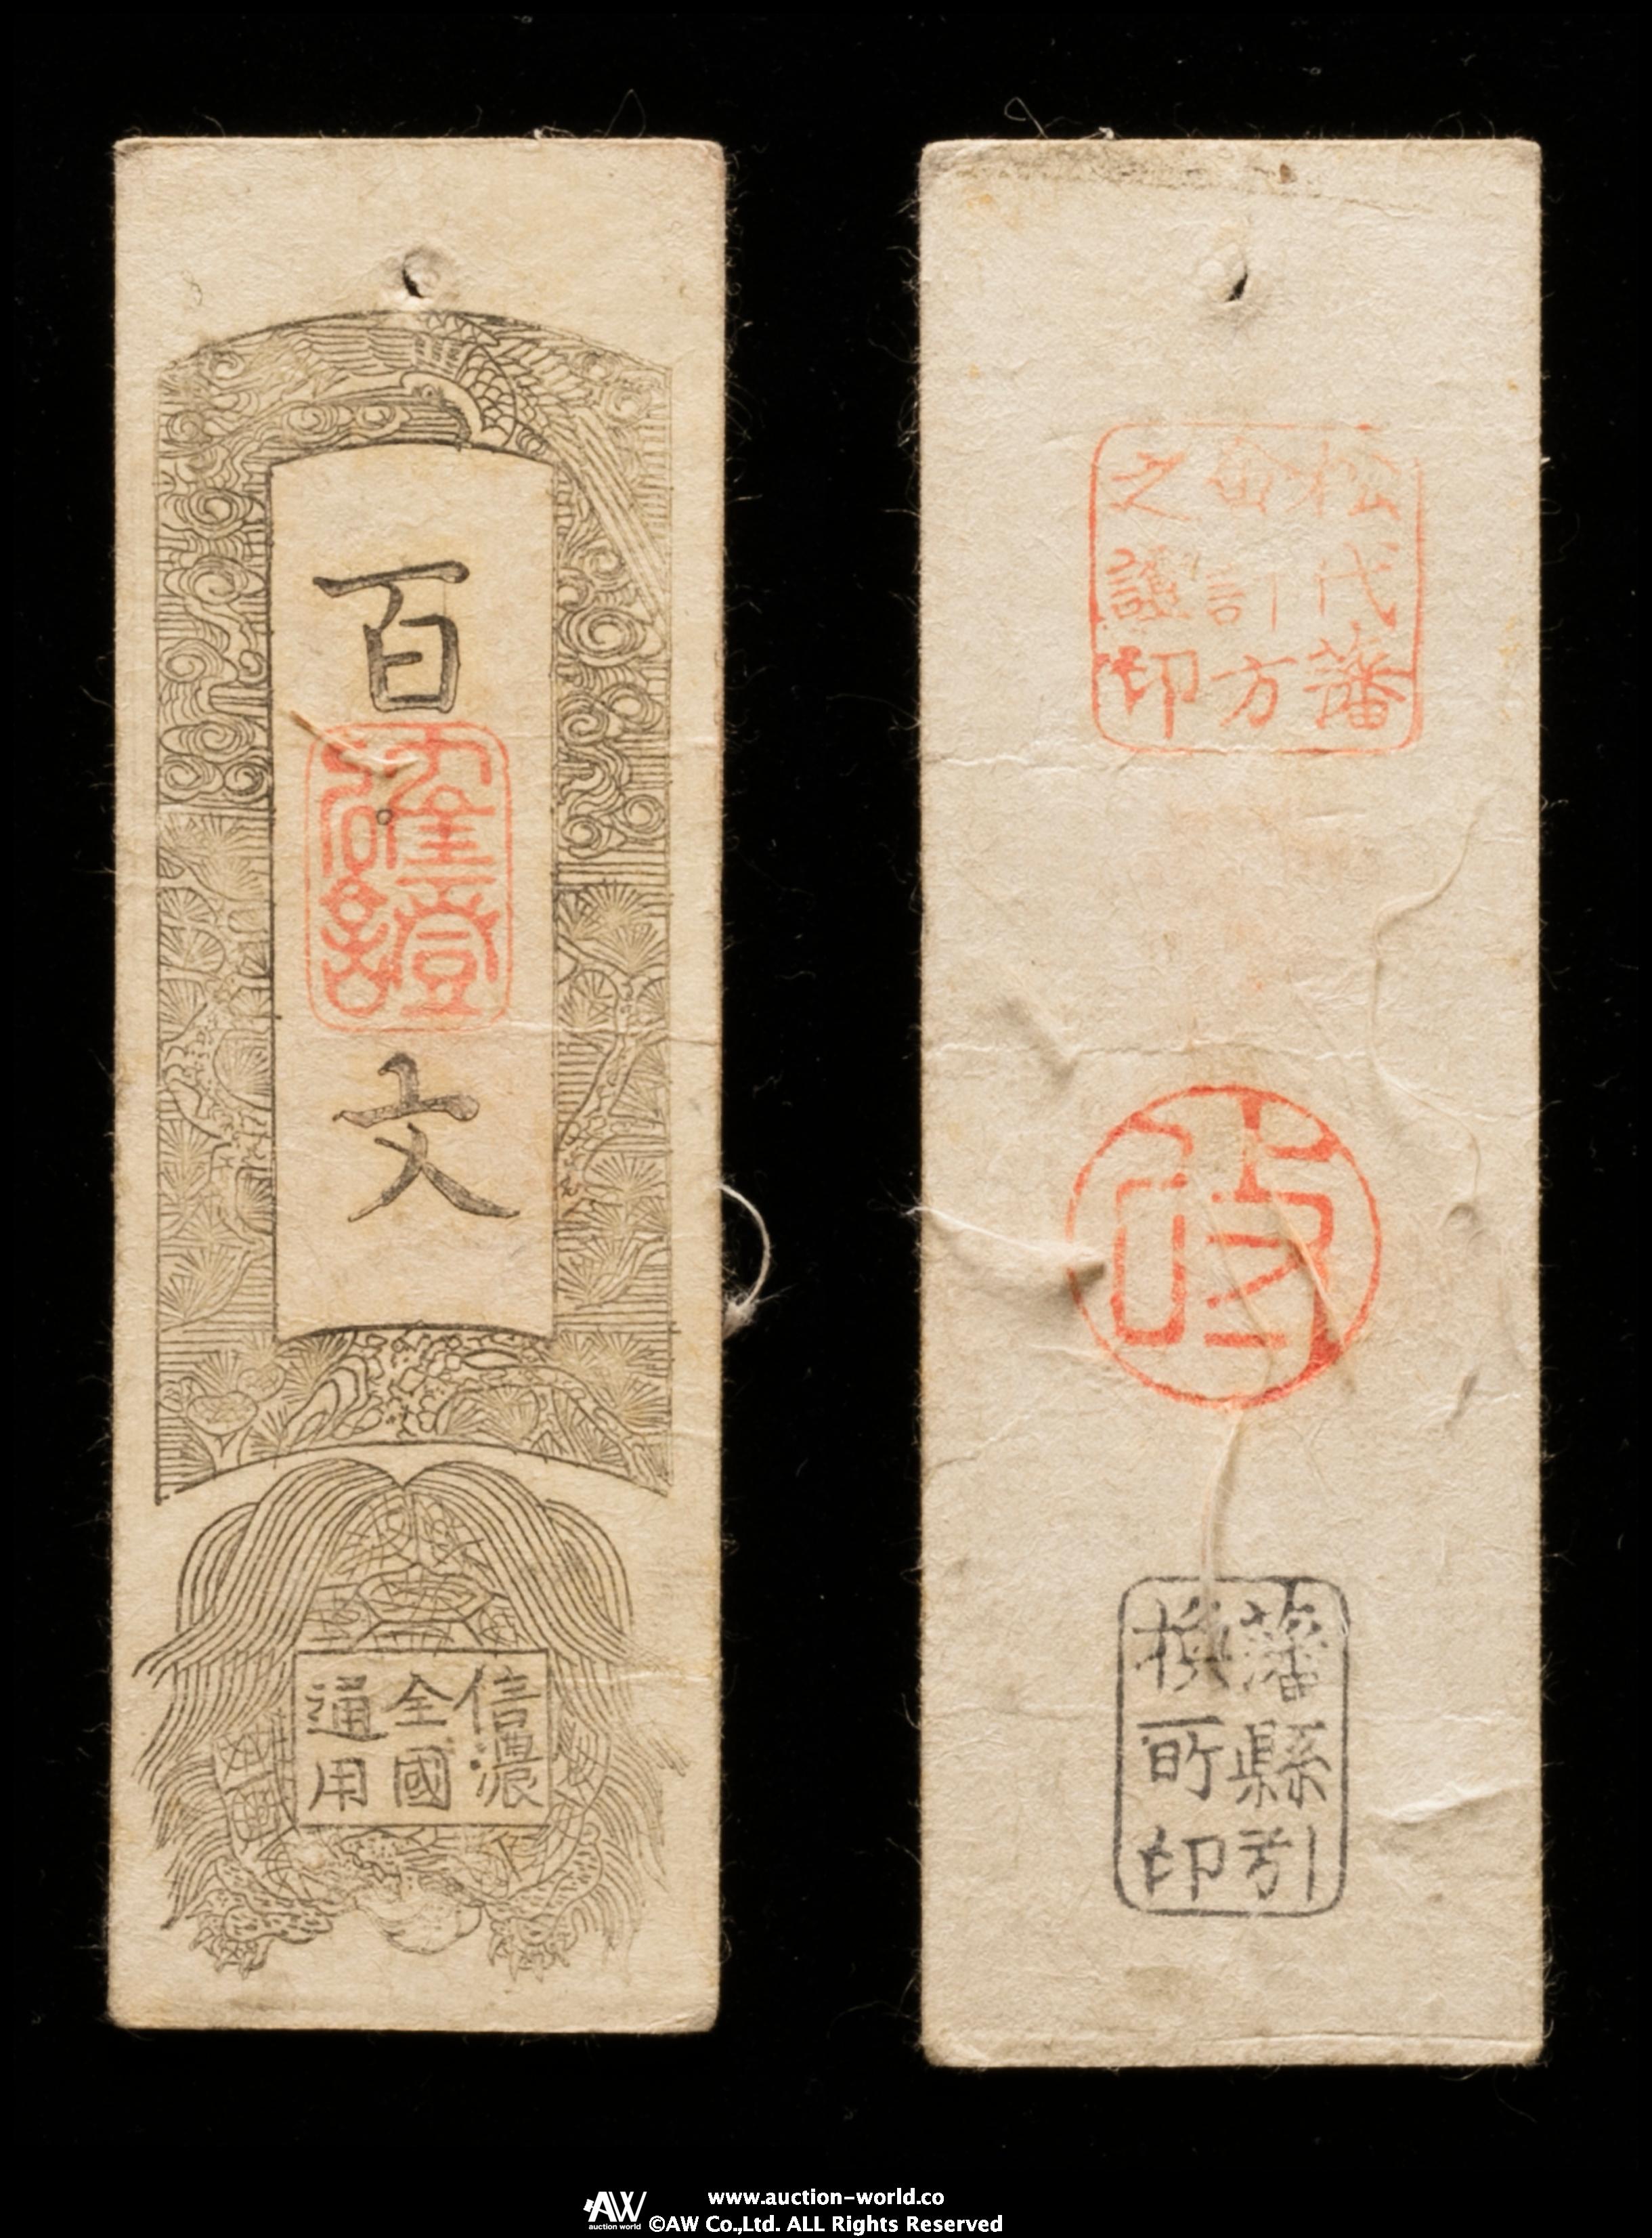 百
確證
文
信濃
全國
通用
松代藩
會計方
之證印
藩縣引
換所印
AW
auction world
www.auction-world.co
©AW Co.,Ltd. ALL Rights Reserved